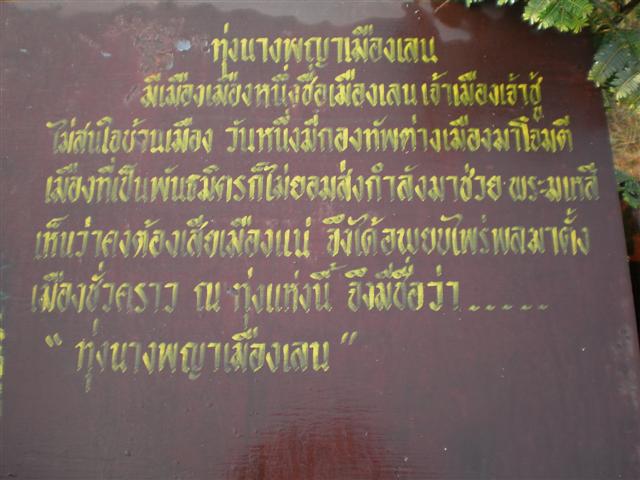 ทุ่งนางพญาเมืองเลน
มีเมืองเมืองหนึ่งชื่อเมืองเลน เจ้าเมืองเจ้าชู้
ไม่สนใจบ้านเมือง วันหนึ่งมีกองทัพต่างเมืองมาโจมตี
เมืองที่เป็นพันธมิตรก็ไม่ยอมส่งกำลังมาช่วย พระมเหสี
เห็นว่าคงต้องเสียเมืองแน่ จึงได้อพยบไพร่พลมาตั้ง
เมืองชั่วคราว ณ ทุ่งแห่งนี้ จึงมีชื่อว่า.....
“ ทุ่งนางพญาเมืองเลน ”